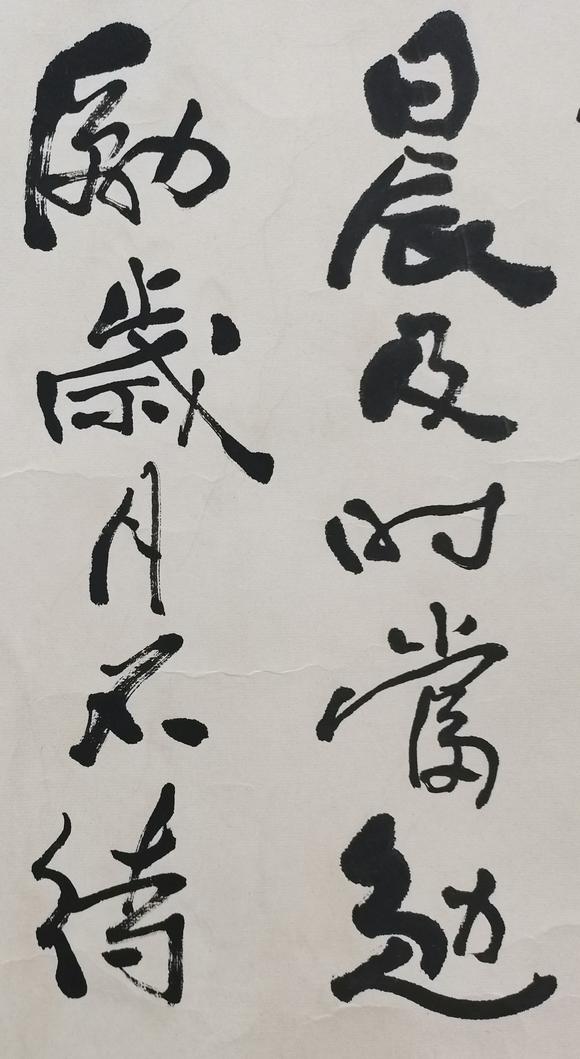 晨及时當勉
勵歲月不待